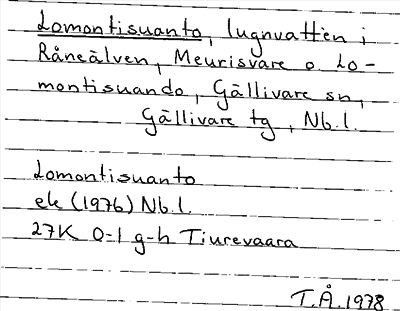 Lomontisuanto, lugnvatten i
Råneälven, Meurisvare o. Lo-
montisuando, Gällivare sn,
Gällivare tg, Nb.l.
Lomontisuanto
ek (1976) Nb.l.
27K 0-1 g-h Tiurevaara
T.Å. 1978